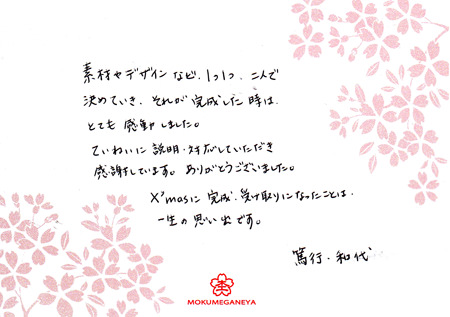 素材やデザインなど、1つ1つ、二人で
決めていき、それが完成した時は、
とても感動しました。
ていねいに説明・対応していただき
感謝しています。ありがとうございました。
X'masに完成・受け取りになったことは、
一生の思い出です。
篤行・和代
MOKUMEGANEYA